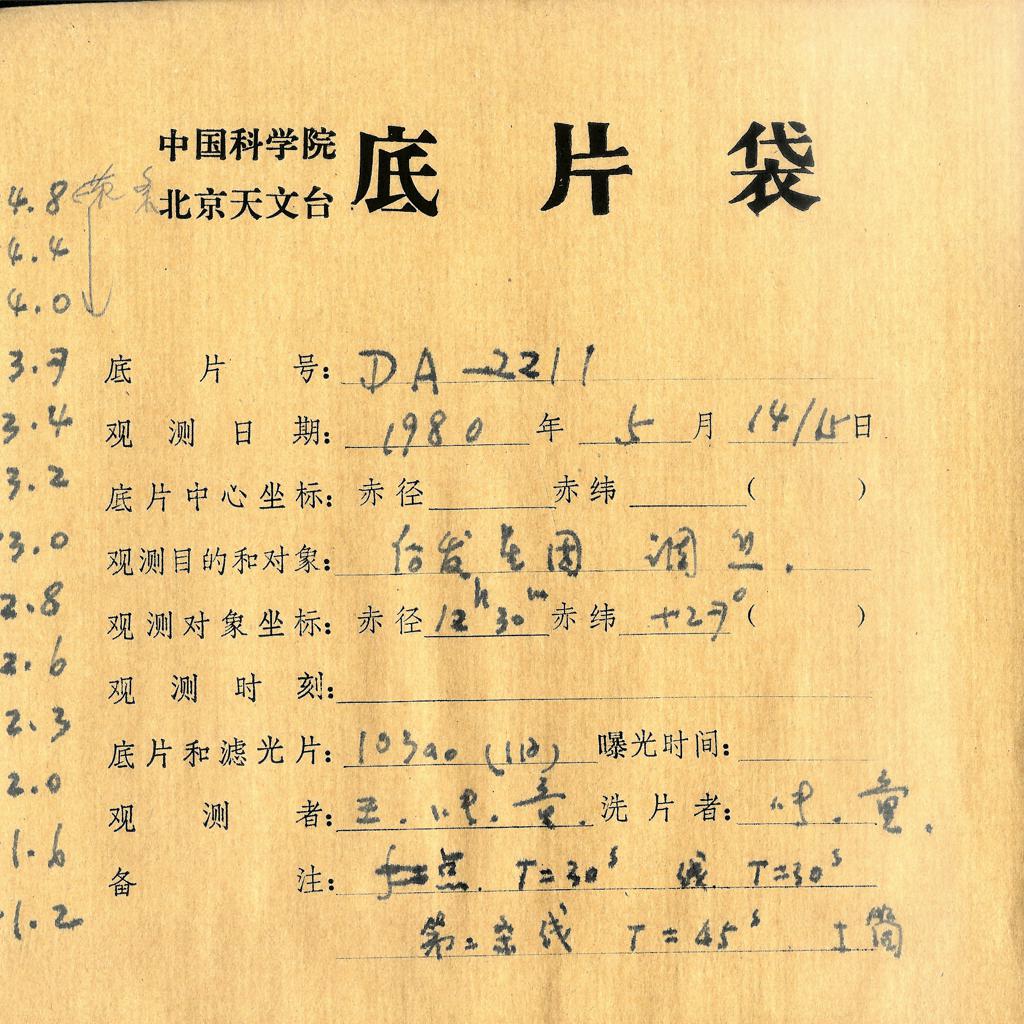 中国科学院
北京天文台
底片袋
4.8
4.4
4.0
3.7
3.4
3.2
3.0
2.8
2.6
2.3
2.0
1.6
1.2
底片号: DA-2211
观测日期: 1980年5月14/15日
底片中心坐标: 赤径 赤纬 ( )
观测目的和对象: 后发星团 调焦.
观测对象坐标: 赤径 12h30m 赤纬 +27° ( )
观测时刻:
底片和滤光片: 103aO 曝光时间:
观测者: 王. 童. 洗片者: 童.
备注: 点. T=30s 线 T=30s
第二条线 T=45s